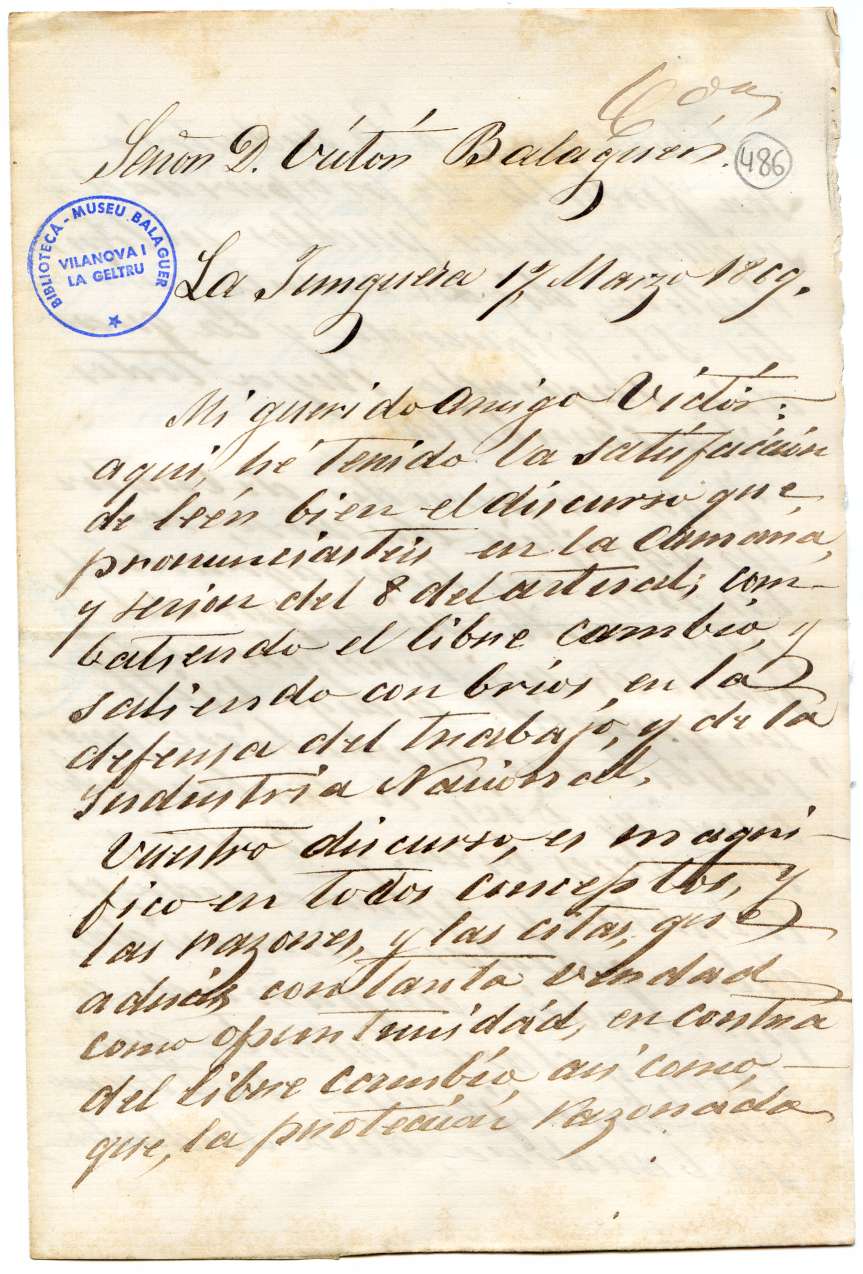 Señor D. Victór Balaguér.
486
BIBLIOTECA - MUSEU BALAGUER
VILANOVA I
LA GELTRU
La Junquera 17 Marzo 1869.
Mi querido amigo Victór:
aqui, hé tenido la satisfaccion
de leér bien el discurso que
pronunciasteis en la Camara,
y sesion del 8 del actual; com-
batiendo el libre cambio, y
saliendo con brios, en la
defensa del trabajo, y de la
Industria Nacional.
Vuestro discurso, es magni-
fico en todos conceptos, y
las razones, y las citas, que
aducis con tanta verdad
como oportunidad, en contra
del libre cambio, asi como,
que, la protecion razonada